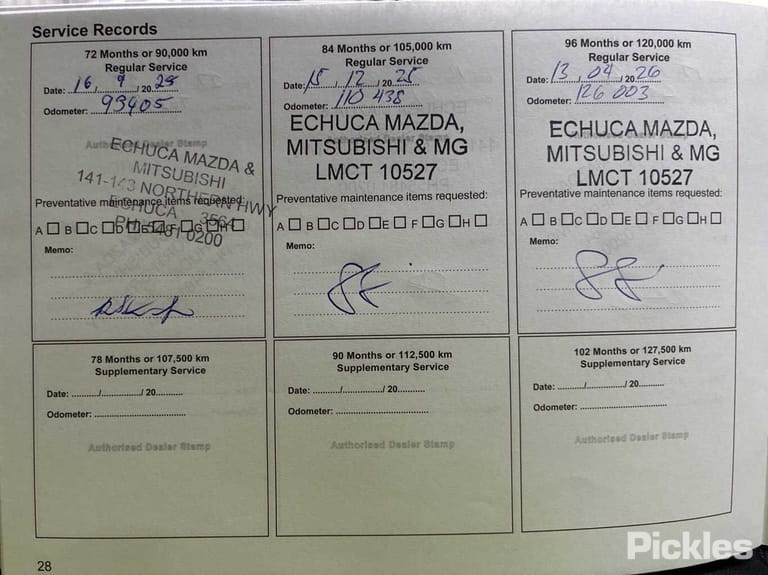 Service Records
72 Months or 90,000 km
Regular Service
Date: 16 / 9 / 2025
Odometer: 93405
Authorised Dealer Stamp
ECHUCA MAZDA &
MITSUBISHI
141-143 NORTHERN HWY
ECHUCA 3564
PH: 5481 0200
Preventative maintenance items requested:
A B C D E F G H
Memo:
84 Months or 105,000 km
Regular Service
Date: 15 / 12 / 2025
Odometer: 110 438
Authorised Dealer Stamp
ECHUCA MAZDA,
MITSUBISHI & MG
LMCT 10527
Preventative maintenance items requested:
A B C D E F G H
Memo:
96 Months or 120,000 km
Regular Service
Date: 13 / 04 / 2026
Odometer: 126 003
ECHUCA MAZDA,
MITSUBISHI & MG
LMCT 10527
Preventative maintenance items requested:
A B C D E F G H
Memo:
78 Months or 107,500 km
Supplementary Service
Date: ........../............/ 20..........
Odometer: ..............................
Authorised Dealer Stamp
90 Months or 112,500 km
Supplementary Service
Date: ........../............/ 20..........
Odometer: ..............................
Authorised Dealer Stamp
102 Months or 127,500 km
Supplementary Service
Date: ........../............/ 20..........
Odometer: ..............................
Authorised Dealer Stamp
28
Pickles